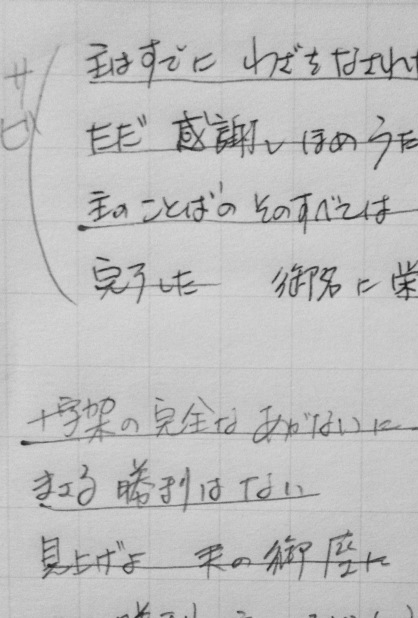 サビ
主はすでに わざをなされ
ただ 感謝し ほめうた
主のことばの そのすべては
完了した 御名に栄
十字架の完全な あがないに
まさる 勝利はない
見上げよ 天の御座に